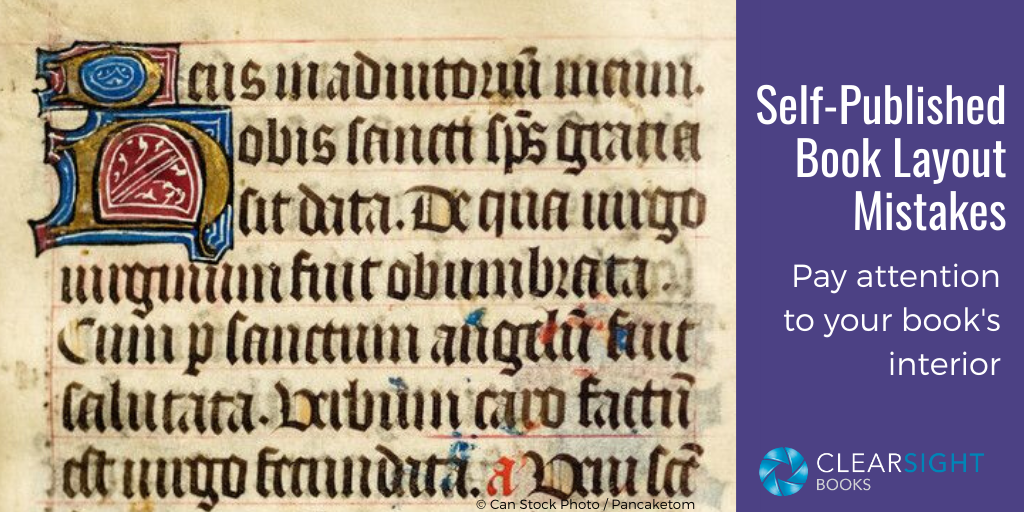 Deus in adiutoriū meum.
Nobis sancti sp̄s gratia
sit data. De qua uirgo
uirginum fuit obumbrata.
Cum p sanctum angelū fuit
salutata. Verbum caro factū
est uirgo fecundata. a Veni scē
© Can Stock Photo / Pancaketom
Self-Published
Book Layout
Mistakes
Pay attention
to your book's
interior
CLEARSIGHT
BOOKS